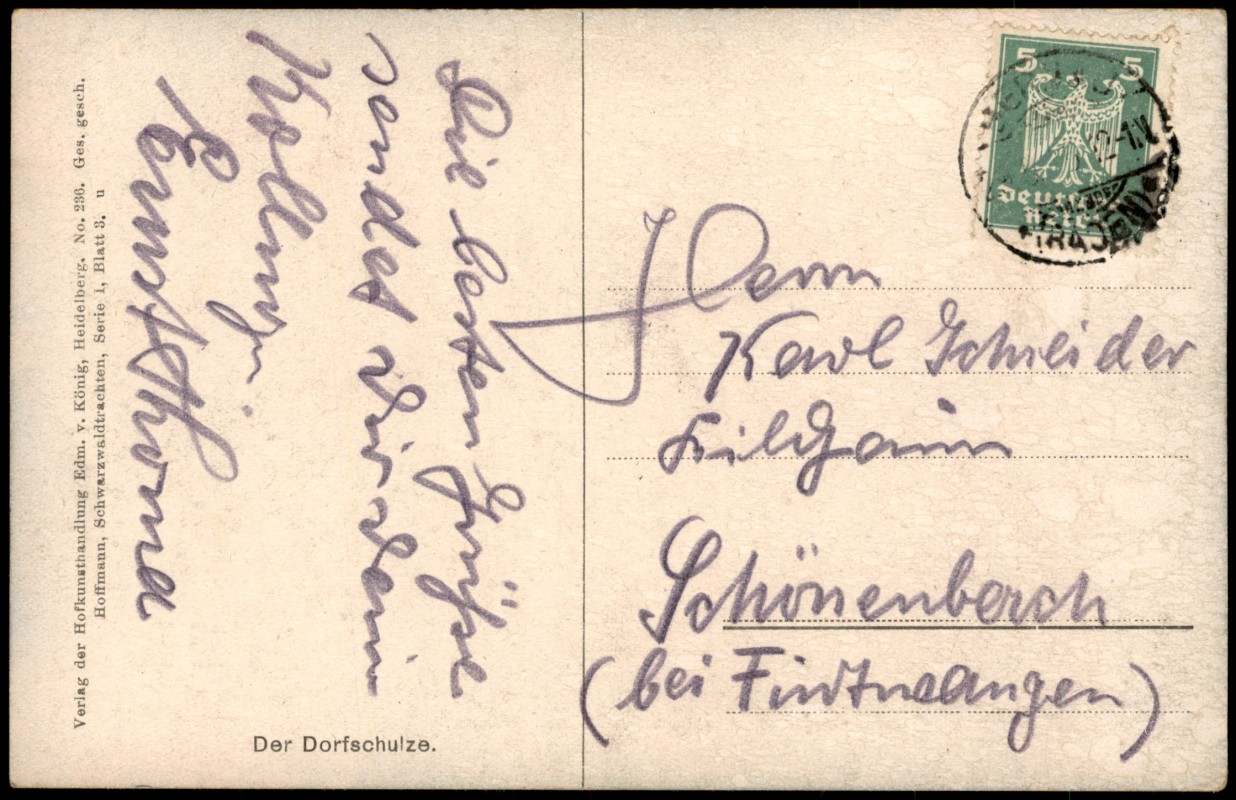 Verlag der Hofkunsthandlung Edm. v. König, Heidelberg. No. 236. Ges. gesch.
Hoffmann, Schwarzwaldtrachten, Serie 1, Blatt 3. u
Die besten Grüße
sendet dir dein
Kolleege
Ernst Thoma
Der Dorfschulze.
5 5
Deutsches
Reich
Herrn
Karl Schneider
Schönenbach
(bei Furtwangen)